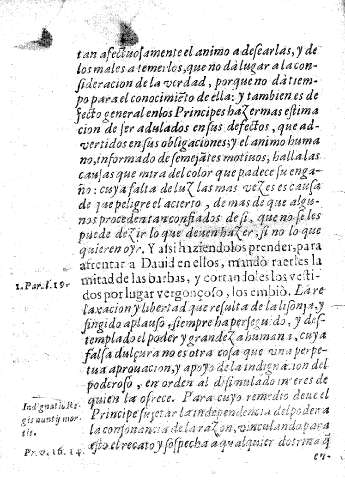 tan afectuosamente el animo a desearlas, y de
los males a temerlos, que no dà lugar a la con-
sideracion de la verdad, porque no dà tiem-
po para el conocimiẽto de ella: y tambien es de
fecto general en los Principes hazer mas estima
cion de ser adulados en sus defectos, que ad-
vertidos en sus obligaciones; y el animo huma
no, informado de semejãtes motivos, halla las
causas que mira del color que padece su enga-
ño: cuya falta de luz las mas vezes es causa
de que peligre el acierto, demas de que algu-
nos proceden tan confiados de si, que no se les
puede dezir lo que deven hazer, si no lo que
quieren oyr. Y assi haziendolos prender, para
afrentar a David en ellos, mandò raerles la
mitad de las barbas, y cortandoles los vesti-
1. Par. f. 19.
dos por lugar vergonçoso, los embiò. La re-
laxacion y libertad que resulta de la lisonja, y
fingido aplauso, siempre ha perseguido, y des-
templado el poder y grandeza humana, cuya
falsa dulçura no es otra cosa que una perpe-
tua aprouacion, y apoyo de la indignacion del
poderoso, en orden al disimulado interes de
Indignatio Re-
quien la ofrece. Para cuyo remedio deve el
gis nuntij mor-
Principe sujetar la independencia del poder a
tis.
la consonancia de la razon, vinculando para
Prov. 16. 14.
esto el recato y sospecha a qualquier dotrina q̃
en-